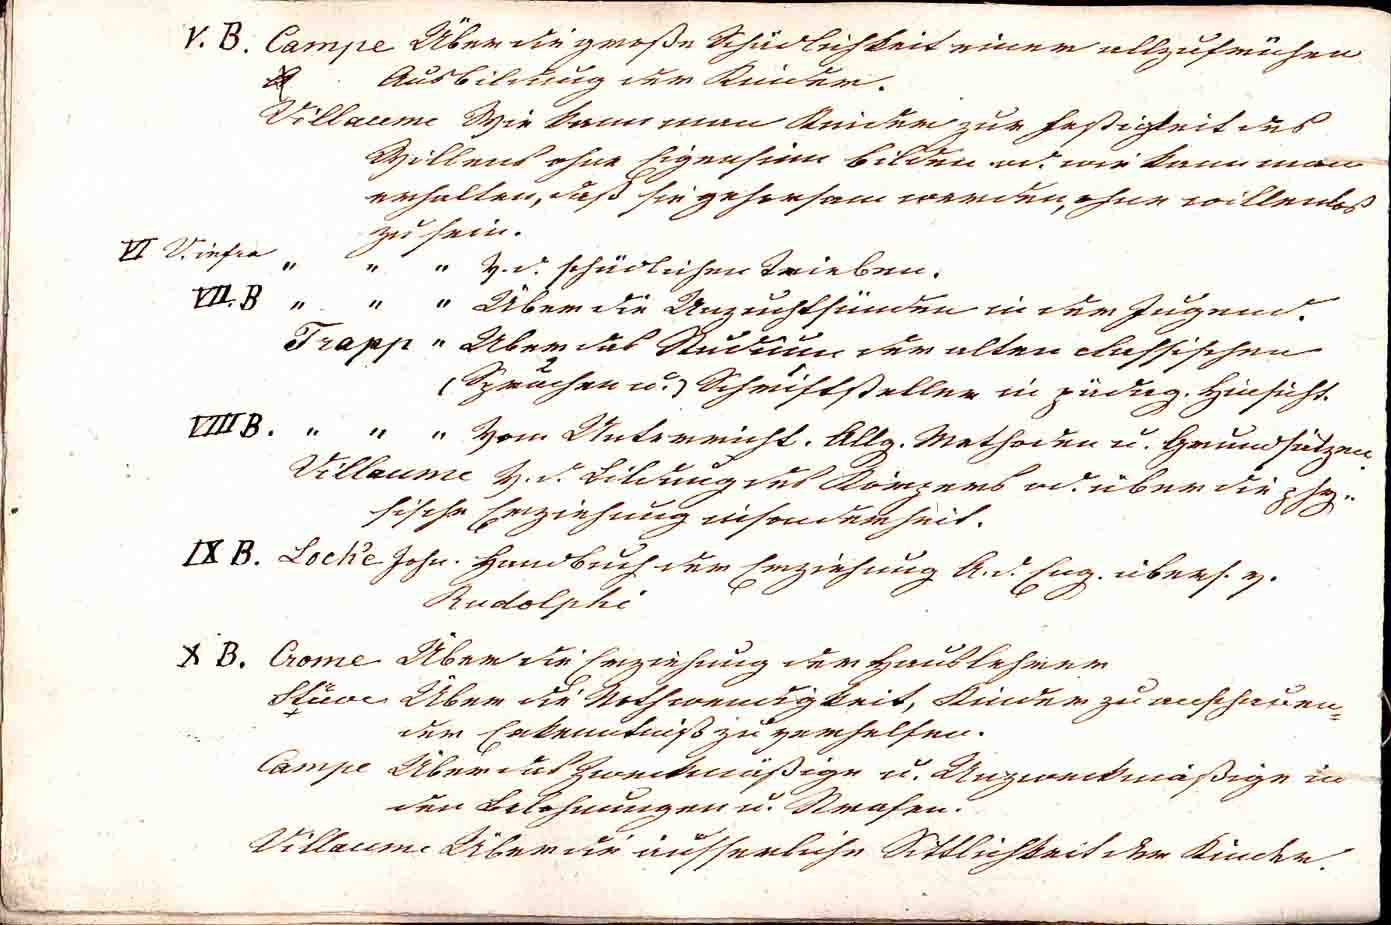 V. B. Campe Über die große Schädlichkeit einer allzufrühen
Ausbildung der Kinder.
Villaume Wie kann man Kinder zur Festigkeit des
Willens ohne Eigensinn bilden od. wie kann man
erhalten, daß sie gehorsam werden, ohne willenlos
zu sein.
VI V. infra " " " V. d. schädlichen Trieben.
VII. B " " " Über die Unzuchtsünden in der Jugend.
Trapp " Über das Studium der alten classischen
(Sprachen u.) Schriftsteller in pädag. Hinsicht.
VIIII B. " " " Vom Unterricht. Allg. Methoden u. Grundsätzen.
Villaume V. d. Bildung des Körpers od. über die phy-
sische Erziehung insonderheit.
IX B. Locke John. Handbuch der Erziehung A. d. Eng. übers. v.
Rudolphi
X B. Crome Über die Erziehung der Hauslehrer
Stüve Über die Nothwendigkeit, Kinder zu anschauen=
der Erkenntniß zu verhelfen.
Campe Über das Zweckmäßige u. Unzweckmäßige in
den Belohnungen u. Strafen.
Villaume Über die äusserliche Sittlichkeit der Kinder.